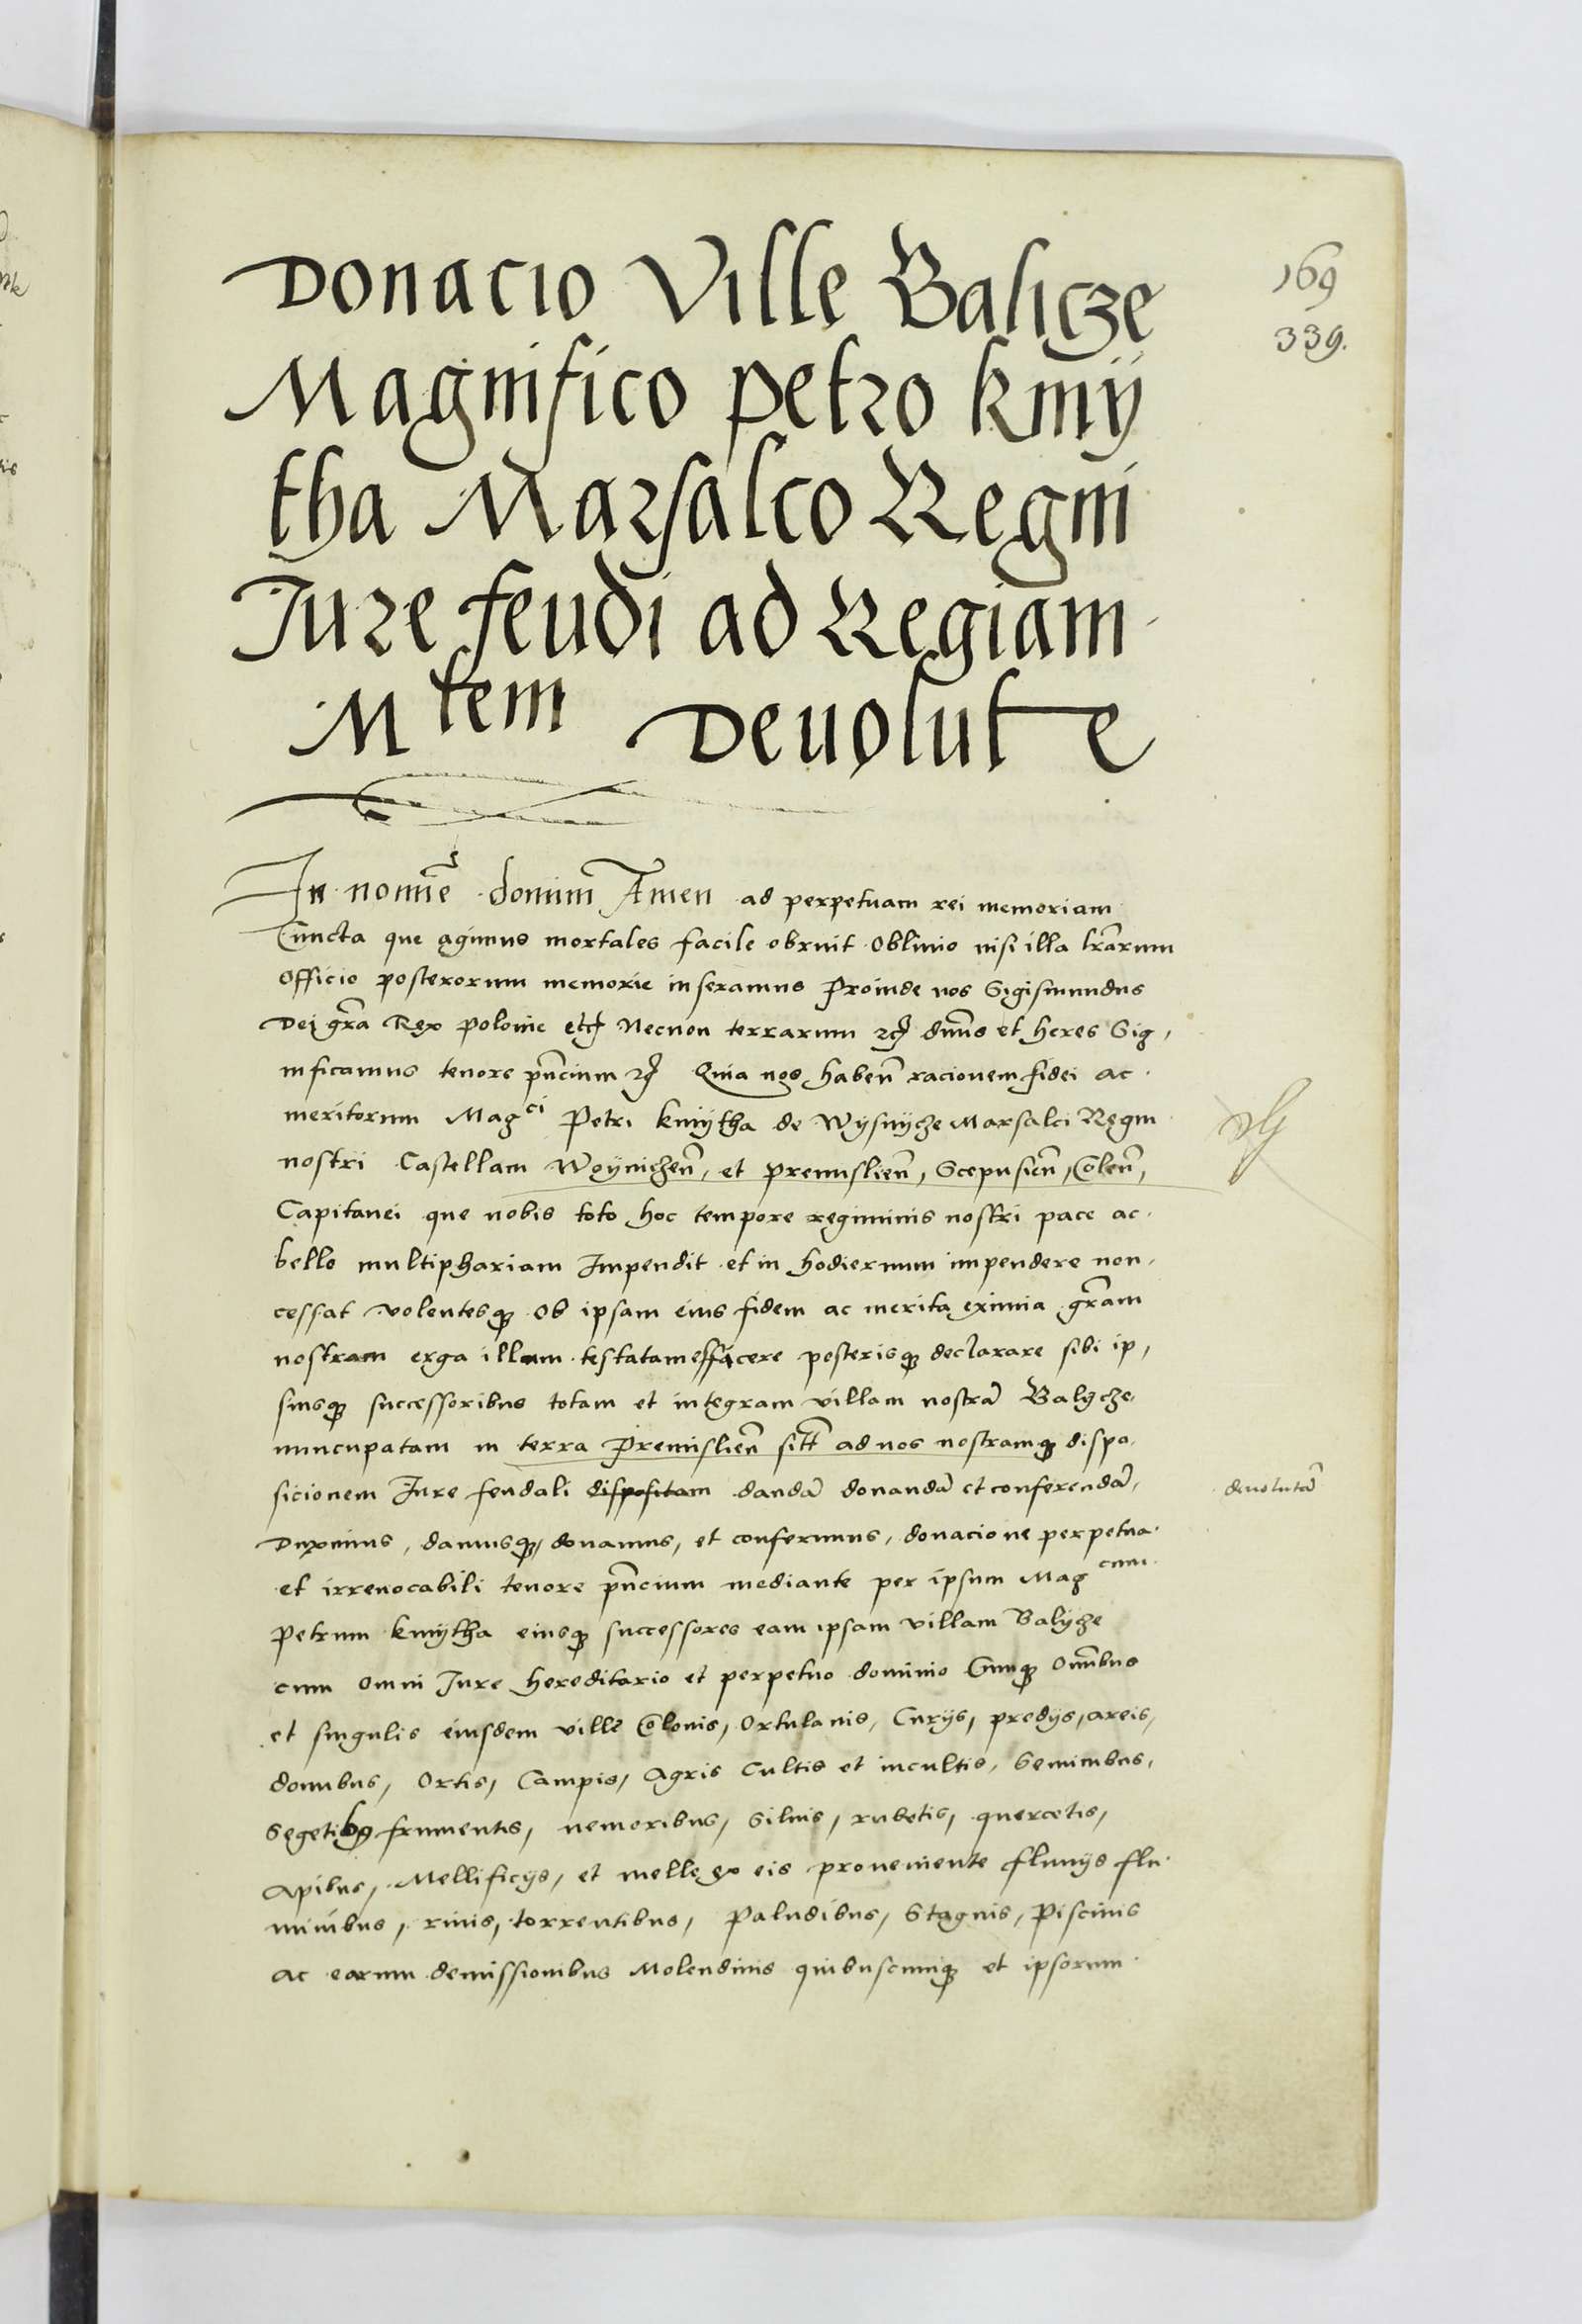 Donacio Ville Balicze
Magnifico Petro Kmÿ
tha Marsalco Regni
Jure feudi ad Regiam
Mtem Devolute
169
339.
In nomine domini Amen ad perpetuam rei memoriam
Cuncta que agimus mortales facile obruit oblivio nisi illa lrarum
officio posterorum memorie inseramus Proinde nos Sigismundus
Dei gra Rex polonie etc Necnon terrarum etc dnns et heres Sig,
nificamus tenore pncium etc Quia nos haben racionem fidei ac
meritorum Magci Petri kmÿtha de Wÿsnÿcze Marsalci Regni
nostri Castellani Woÿniczen, et premislien, Scepusien, Colen,
Capitanei que nobis toto hoc tempore regiminis nostri pace ac
bello multiphariam Impendit et in hodiernum impendere non,
cessat volentesq ob ipsam eius fidem ac merita eximia gram
nostram erga illum testatam efficere posterisq declarare sibi ip,
siusq successoribus totam et integram villam nostra Balÿcze
nuncupatam in terra Premislien sitt ad nos nostramq dispo,
sicionem Jure feudali dispositam danda donanda et conferenda,
devoluta
Duximus, damusq, donamus, et conferimus, donacione perpetua
et irrevocabili tenore pncium mediante per ipsum Magcum
Petrum kmÿtha eiusq successores eam ipsam villam Balÿcze
cum omni Jure hereditario et perpetuo dominio Cumq omnibus
et singulis eiusdem ville Colonis, Ortulanis, Curÿs, predÿs, areis,
domibus, Ortis, Campis, Agris Cultis et incultis, Seminibus,
Segetibus frumentis, nemoribus, Silvis, rubetis, quercetis,
Apibus, Mellificÿs, et melle ex eis proveniente fluvÿs flu
minibus, rivis, torrentibus, Paludibus, Stagnis, Piscinis
ac earum demissionibus Molendinis quibuscumq et ipsorum